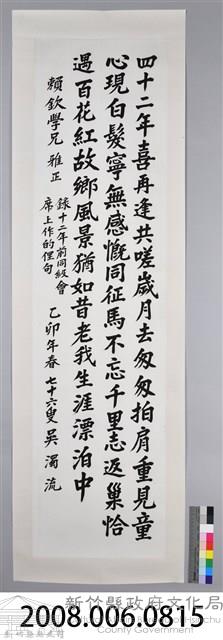 四十二年喜再逢共嗟歲月去匆匆拍肩重見童
心現白髮寧無感慨同征馬不忘千里志返巢恰
遇百花紅故鄉風景猶如昔老我生涯漂泊中
賴欽學兄 雅正
錄十二年前同級會
席上作的俚句
乙卯年春 七十六叟 吳濁流
新竹縣政府文化局
County Government
2008.006.0815